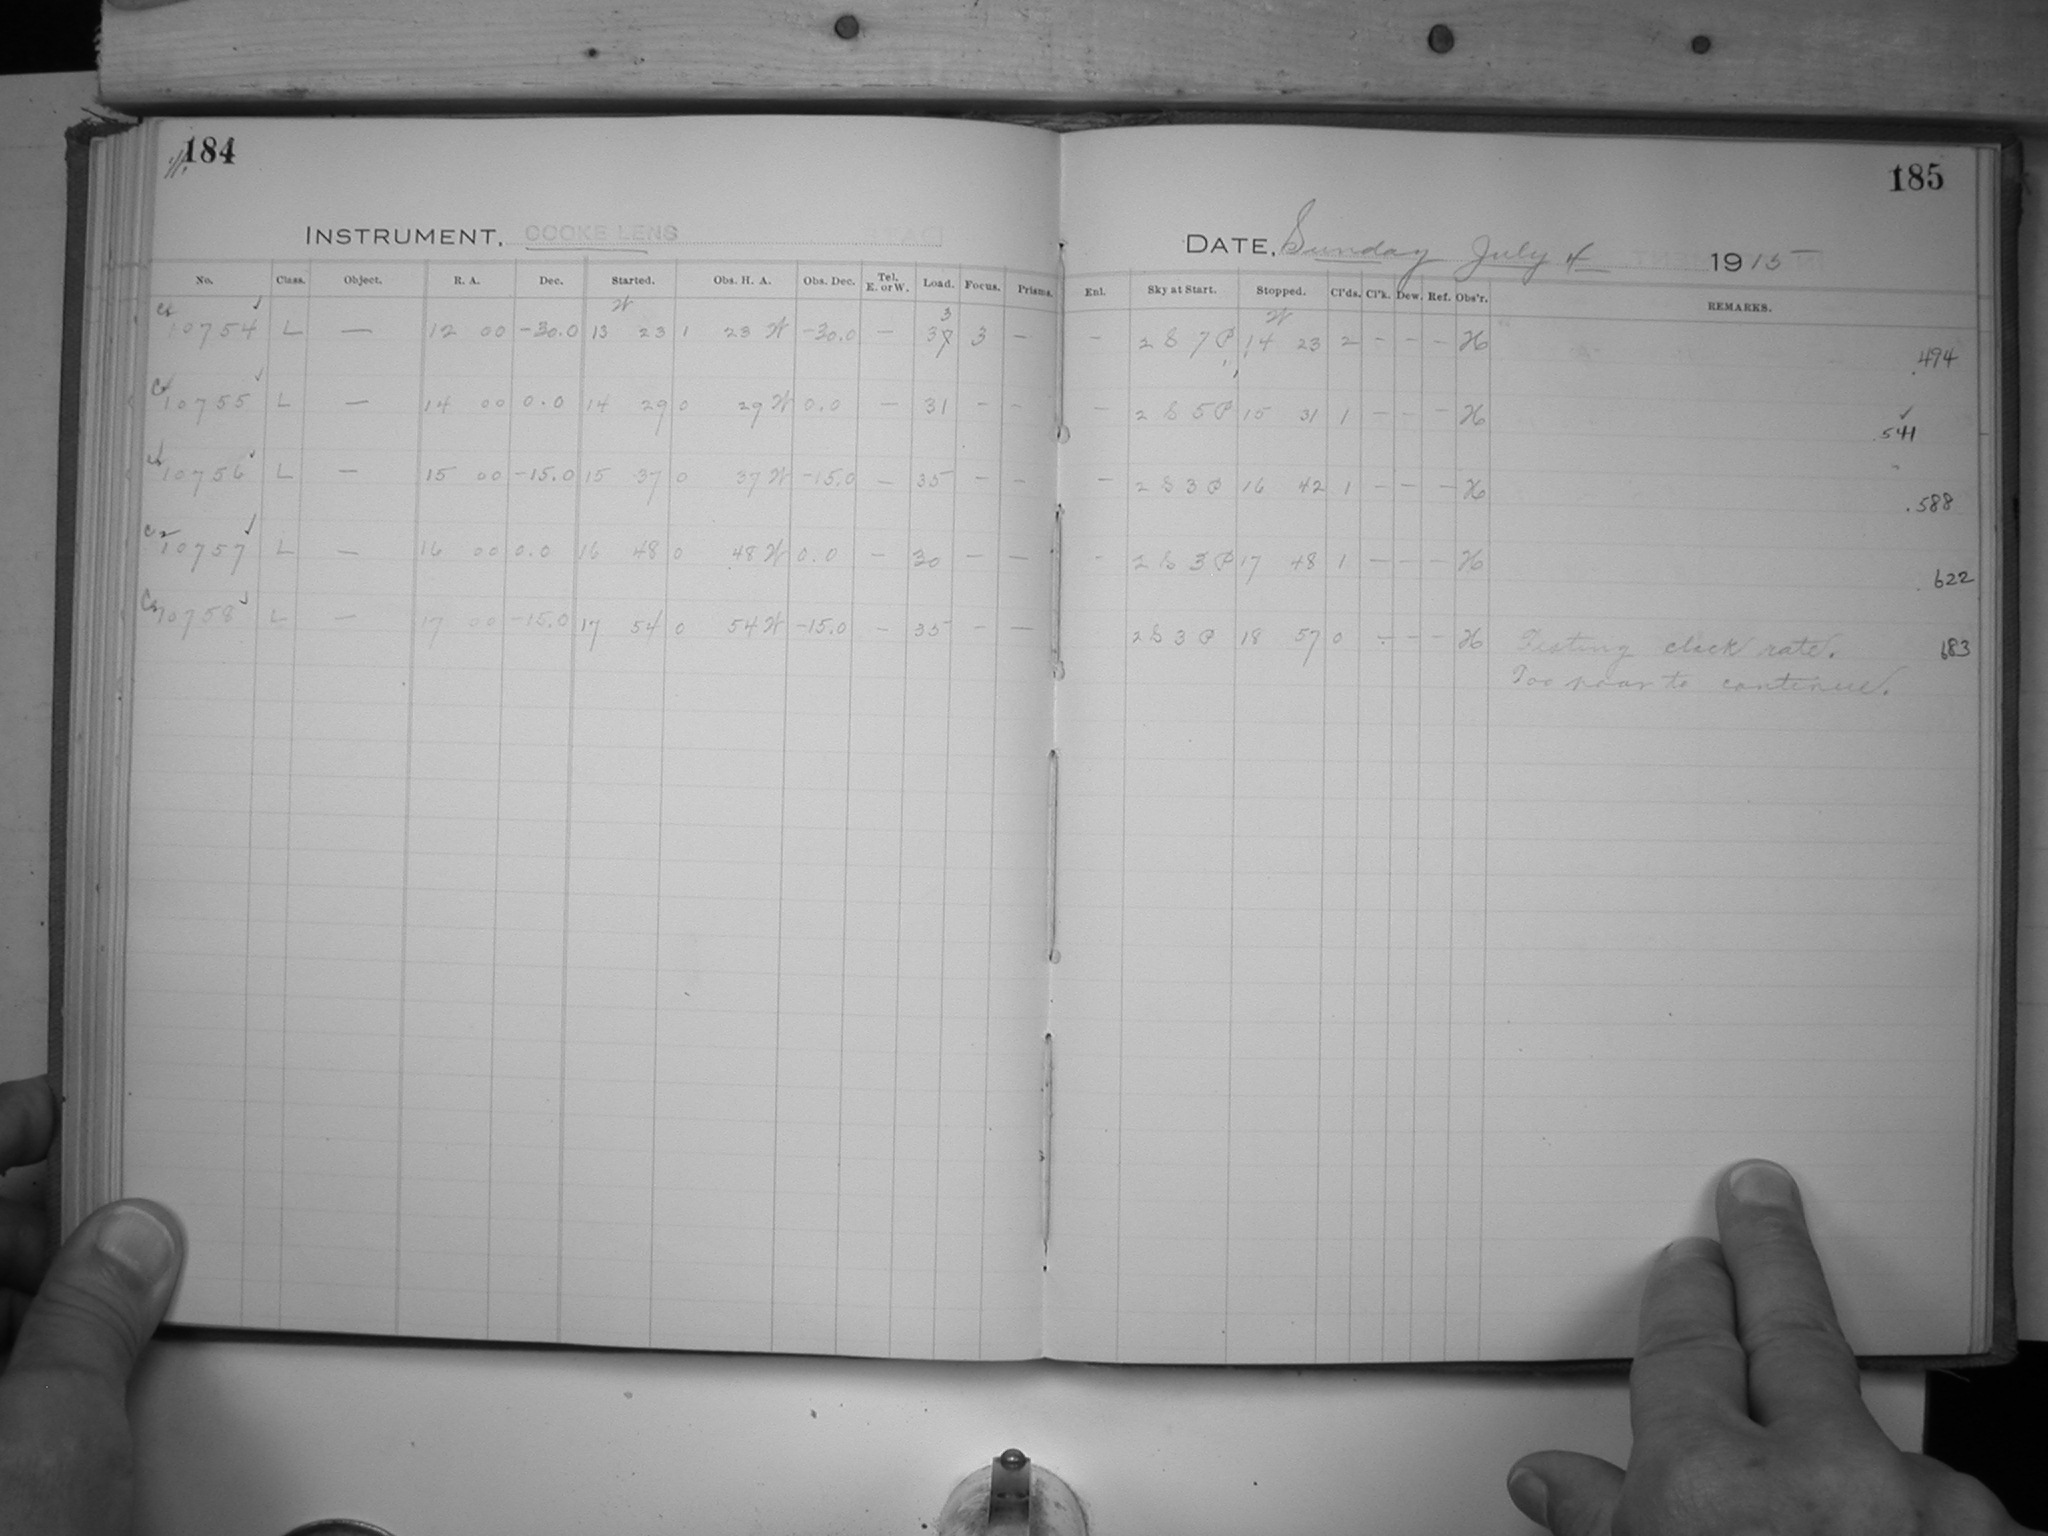 184
INSTRUMENT, COOKE LENS
No. Class. Object. R. A. Dec. Started. Obs. H. A. Obs. Dec. Tel. E. or W. Load. Focus. Prisms.
10754 L — 12 00 -30.0 13 23 1 23 W -30.0 — 3 3 —
10755 L — 14 00 0.0 14 29 0 29 W 0.0 — 31 - -
10756 L — 15 00 -15.0 15 37 0 37 W -15.0 — 35 - -
10757 L — 16 00 0.0 16 48 0 48 W 0.0 — 30 - —
10758 L — 17 00 -15.0 17 54 0 54 W -15.0 — 35 - —
185
DATE, Sunday July 4 1915
Enl. Sky at Start. Stopped. Cl'ds. Cl'k. Dew. Ref. Obs'r. REMARKS.
- 2 S 7 P 14 23 2 - - - H .494
- 2 S 5 P 15 31 1 - - - H .541
- 2 S 3 P 16 42 1 - - - H .588
- 2 S 3 P 17 48 1 - - - H .622
2 S 3 P 18 57 0 - - - H Testing clock rate. 683
Too poor to continue.